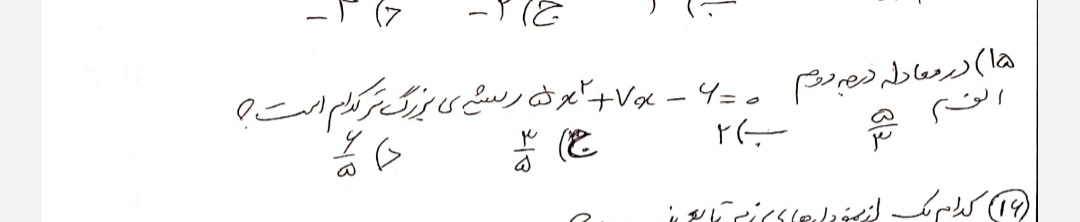 ج) ۲- د) ۳-
۱۵) در معادله درجه دوم ۵x²+۷x-۶=۰ ریشه ی بزرگ تر کدام است؟
الف) ۵/۳ ب) ۲ ج) ۳/۵ د) ۶/۵
۱۶) کدام یک از نمودارهای زیر تابع